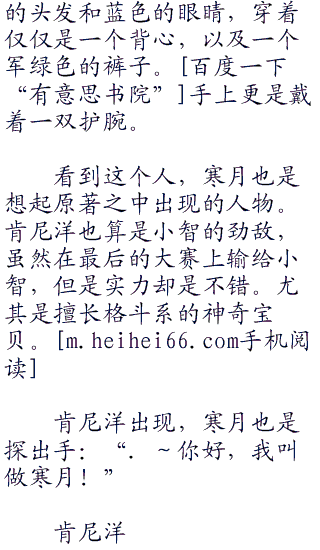 的头发和蓝色的眼睛，穿着
仅仅是一个背心，以及一个
军绿色的裤子。[百度一下
“有意思书院”]手上更是戴
着一双护腕。
看到这个人，寒月也是
想起原著之中出现的人物。
肯尼洋也算是小智的劲敌，
虽然在最后的大赛上输给小
智，但是实力却是不错。尤
其是擅长格斗系的神奇宝
贝。[m.heihei66.com手机阅
读]
肯尼洋出现，寒月也是
探出手：“．～你好，我叫
做寒月！”
肯尼洋